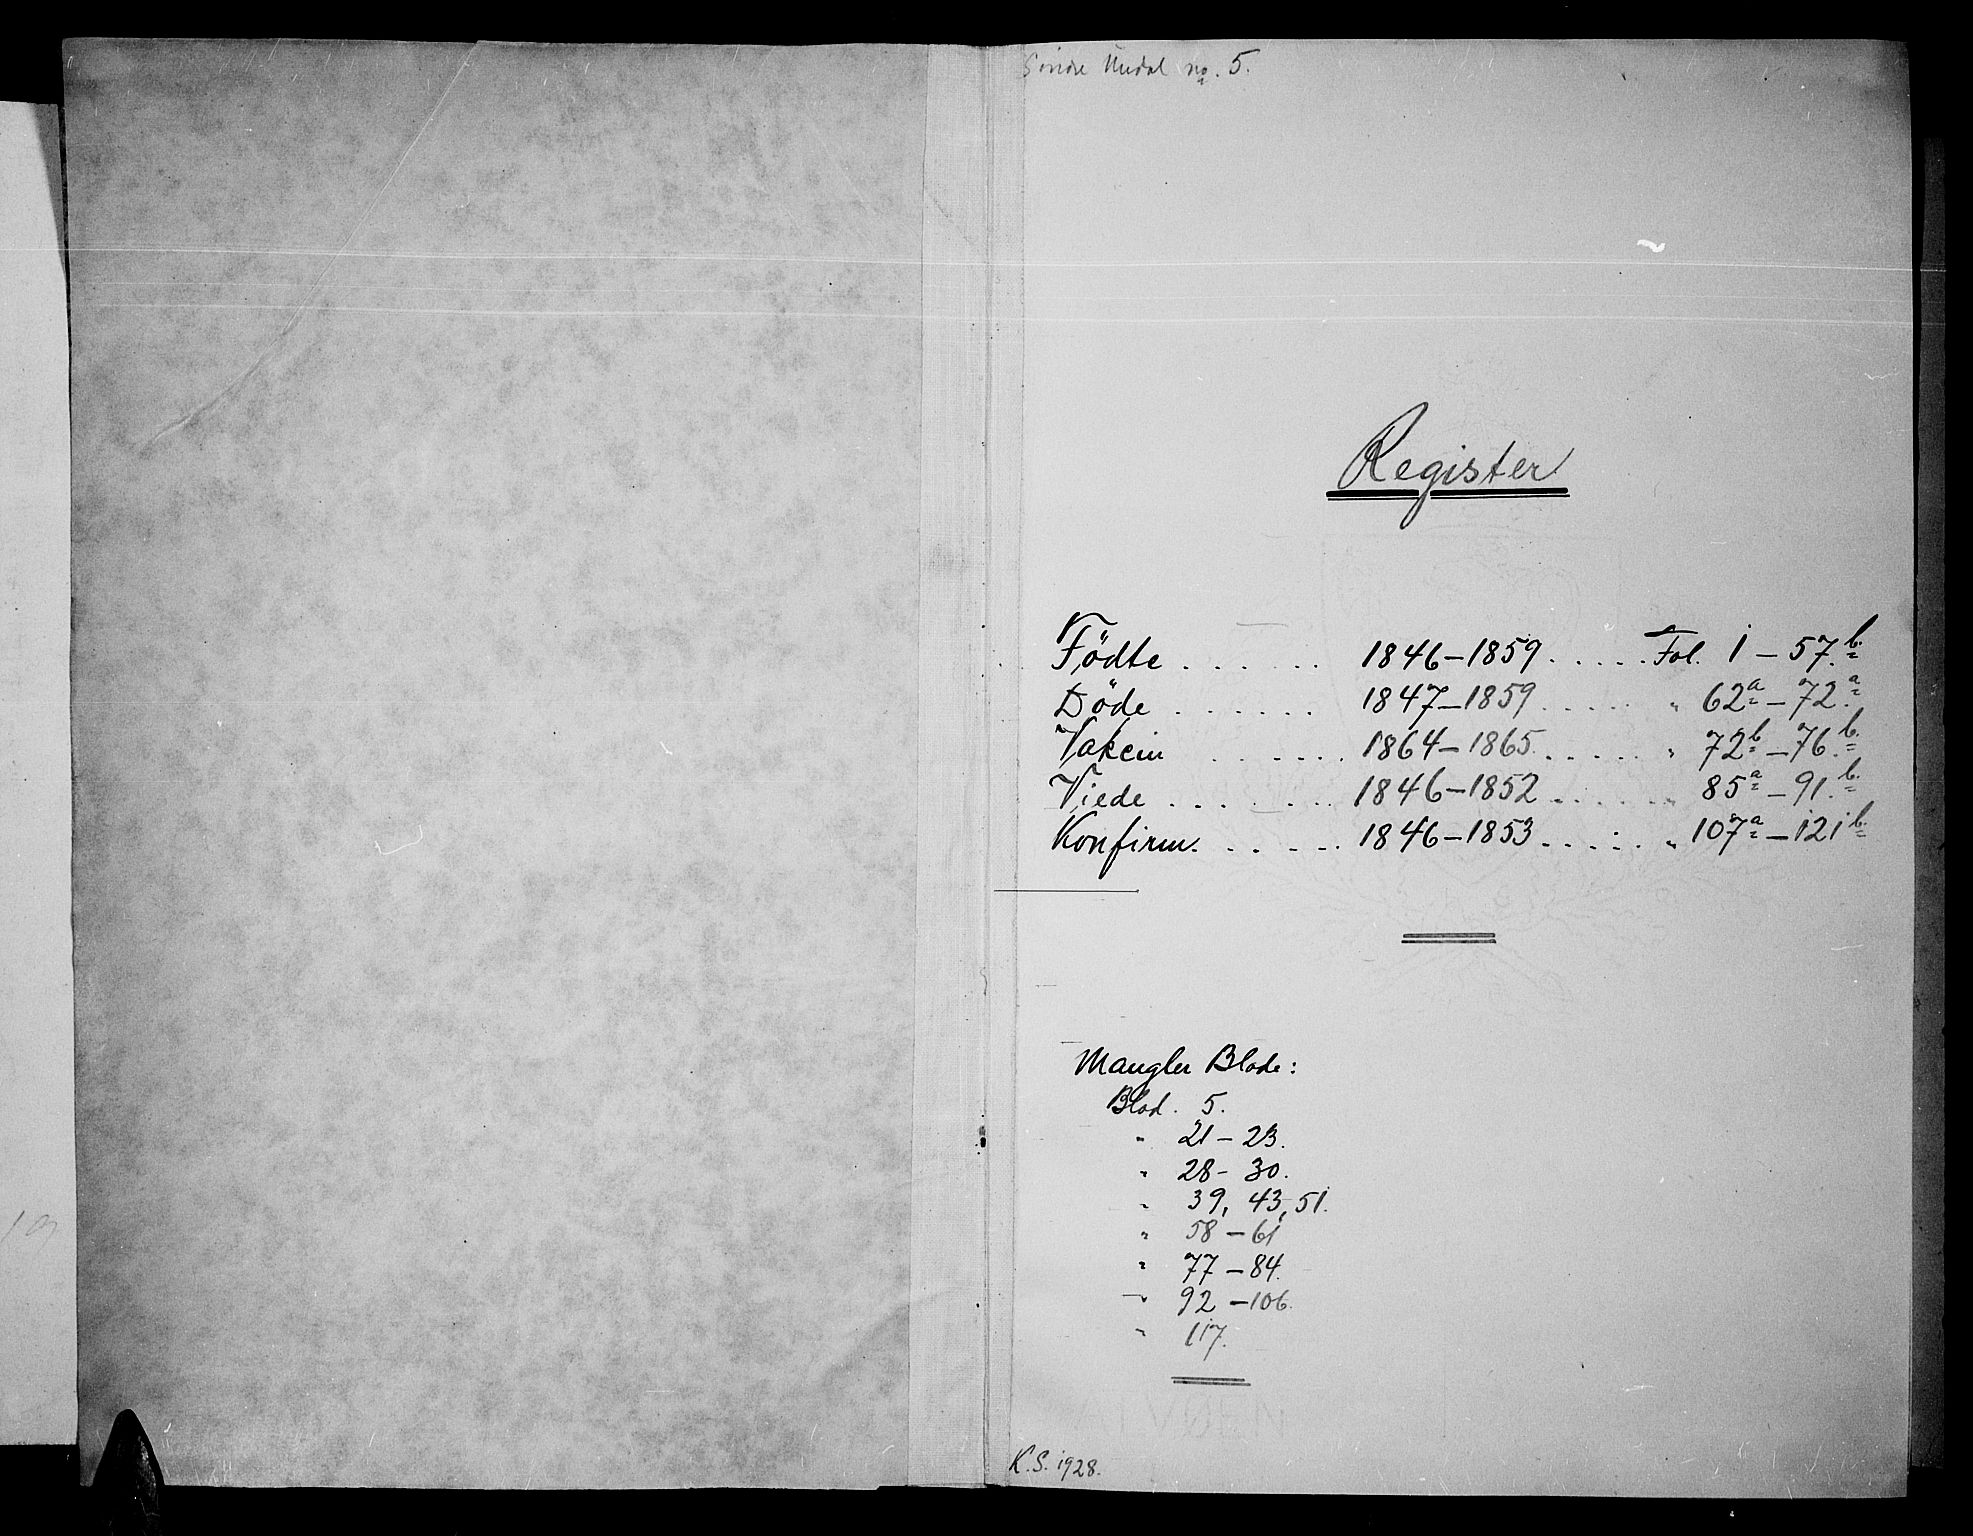 Søndre Undal no. 5.
Register
Födte . . . . . . 1846-1859 . . . . . Fol. 1 - 57.b
Döde . . . . . . 1847-1859 . . . . . " 62a - 72.a
Vakcin . . . . . . 1864-1865. . . . . . " 72b - 76.b
Viede . . . . . . 1846-1852 . . . . . " 85a - 91.b
Konfirm. . . . . . 1846-1853 . . . . . " 107a - 121b
Mangler Blade:
Blad. 5.
" 21 - 23.
" 28 - 30.
" 39, 43, 51.
" 58 - 61
" 77 - 84.
" 92 - 106.
" 117.
K.S. 1928.
19